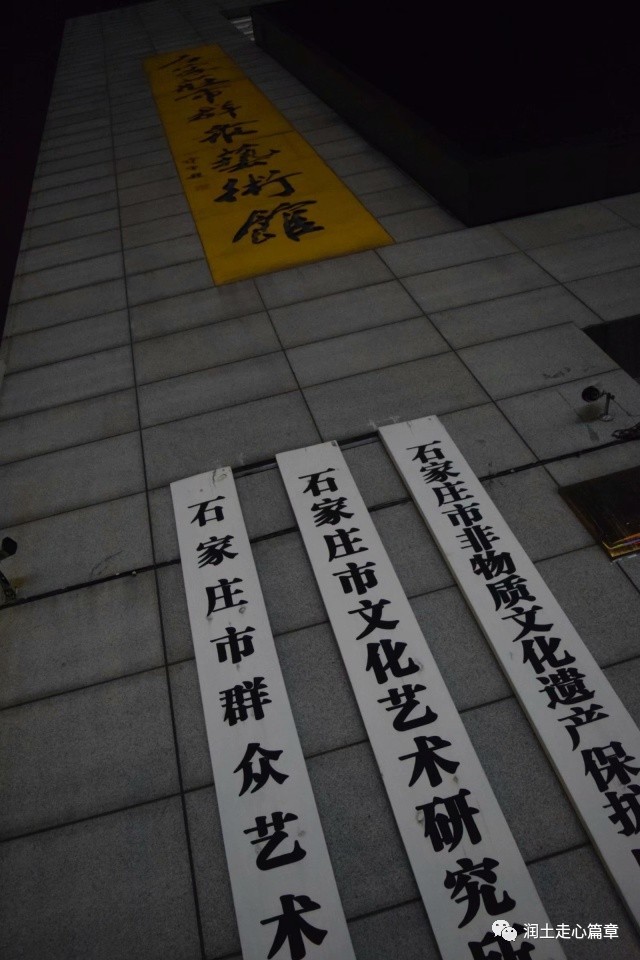 石家莊市群衆藝術館
石家庄市群众艺术
石家庄市文化艺术研究所
石家庄市非物质文化遗产保护
润土走心篇章